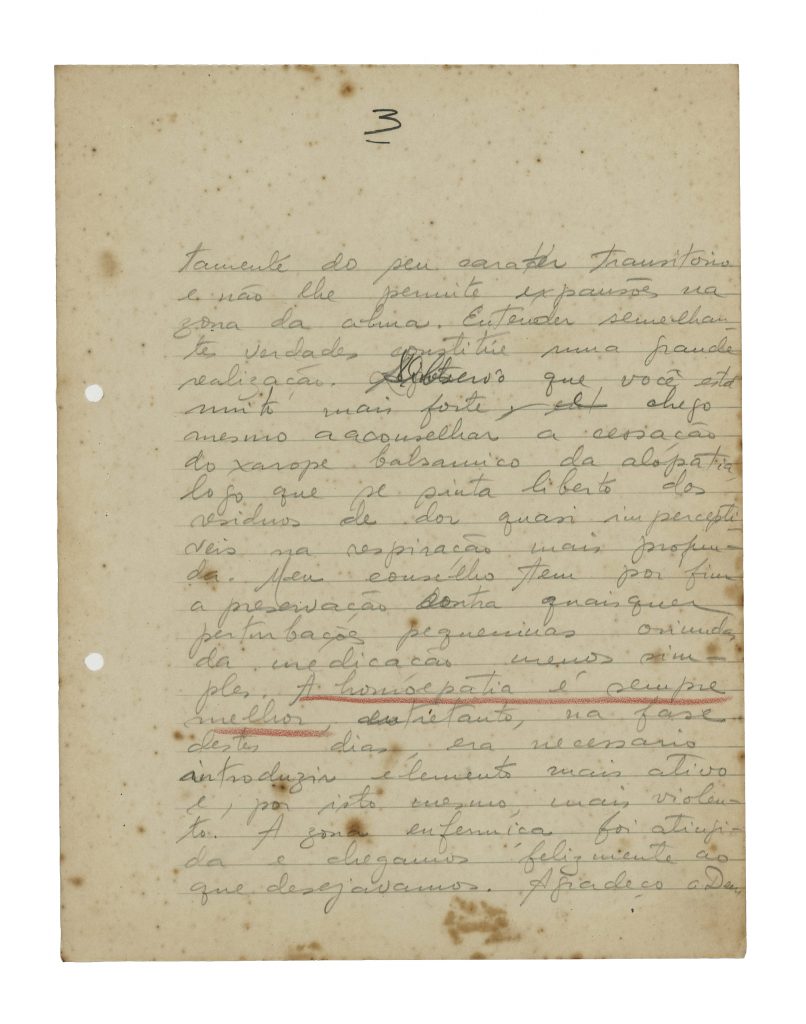 3
tamente do seu carater transitorio
e não lhe permite expansões na
zona da alma. Entender semelhan-
tes verdades constitúe uma grande
realização. Observo que você está
muito mais forte, chego
mesmo a aconselhar a cessação
do xarope balsamico da alópatia,
logo que se sinta liberto dos
residuos de dor quasi imperceptí
veis na respiração mais profun-
da. Meu conselho tem por fim
a preservação contra quaisquer
perturbações pequeninas oriundas
da medicação menos sim-
ples. A homoepátia é sempre
melhor, entretanto, na fase
destes dias, era necessario
introduzir elemento mais ativo
e, por isto mesmo, mais violen-
to. A zona enfermiça foi atingi-
da e chegamos felizmente ao
que desejavamos. Agradeço a Deus